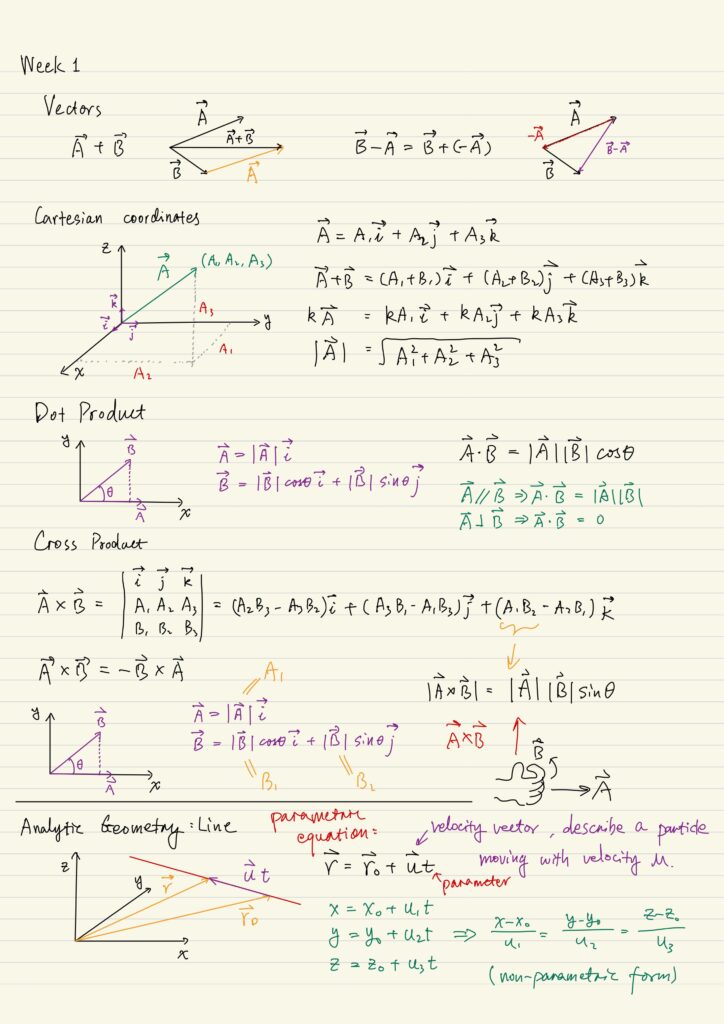 Week 1
Vectors
A⃗ + B⃗
A⃗
A⃗+B⃗
B⃗
A⃗
B⃗ - A⃗ = B⃗ + (-A⃗)
A⃗
-A⃗
B⃗-A⃗
B⃗
Cartesian coordinates
z
A⃗
(A₁, A₂, A₃)
k⃗
i⃗
j⃗
A₃
y
A₁
x
A₂
A⃗ = A₁i⃗ + A₂j⃗ + A₃k⃗
A⃗+B⃗ = (A₁+B₁)i⃗ + (A₂+B₂)j⃗ + (A₃+B₃)k⃗
kA⃗ = kA₁i⃗ + kA₂j⃗ + kA₃k⃗
|A⃗| = √(A₁² + A₂² + A₃²)
Dot Product
y
B⃗
θ
A⃗
x
A⃗ = |A⃗| i⃗
B⃗ = |B⃗| cosθ i⃗ + |B⃗| sinθ j⃗
A⃗·B⃗ = |A⃗||B⃗| cosθ
A⃗ // B⃗ ⇒ A⃗·B⃗ = |A⃗||B⃗|
A⃗ ⊥ B⃗ ⇒ A⃗·B⃗ = 0
Cross Product
i⃗ j⃗ k⃗
A⃗ × B⃗ = | A₁ A₂ A₃ | = (A₂B₃ - A₃B₂)i⃗ + (A₃B₁ - A₁B₃)j⃗ + (A₁B₂ - A₂B₁)k⃗
B₁ B₂ B₃
A⃗ × B⃗ = - B⃗ × A⃗
A₁
|A⃗×B⃗| = |A⃗||B⃗| sinθ
y
B⃗
θ
A⃗
x
A⃗ = |A⃗| i⃗
B⃗ = |B⃗| cosθ i⃗ + |B⃗| sinθ j⃗
B₁
B₂
A⃗×B⃗
B⃗
A⃗
Analytic Geometry: Line
parametric
equation:
velocity vector, describe a particle
moving with velocity u.
z
y
r⃗
u⃗t
r⃗₀
x
r⃗ = r⃗₀ + u⃗t
parameter
x = x₀ + u₁t
y = y₀ + u₂t ⇒ (x-x₀)/u₁ = (y-y₀)/u₂ = (z-z₀)/u₃
z = z₀ + u₃t
(non-parametric form)